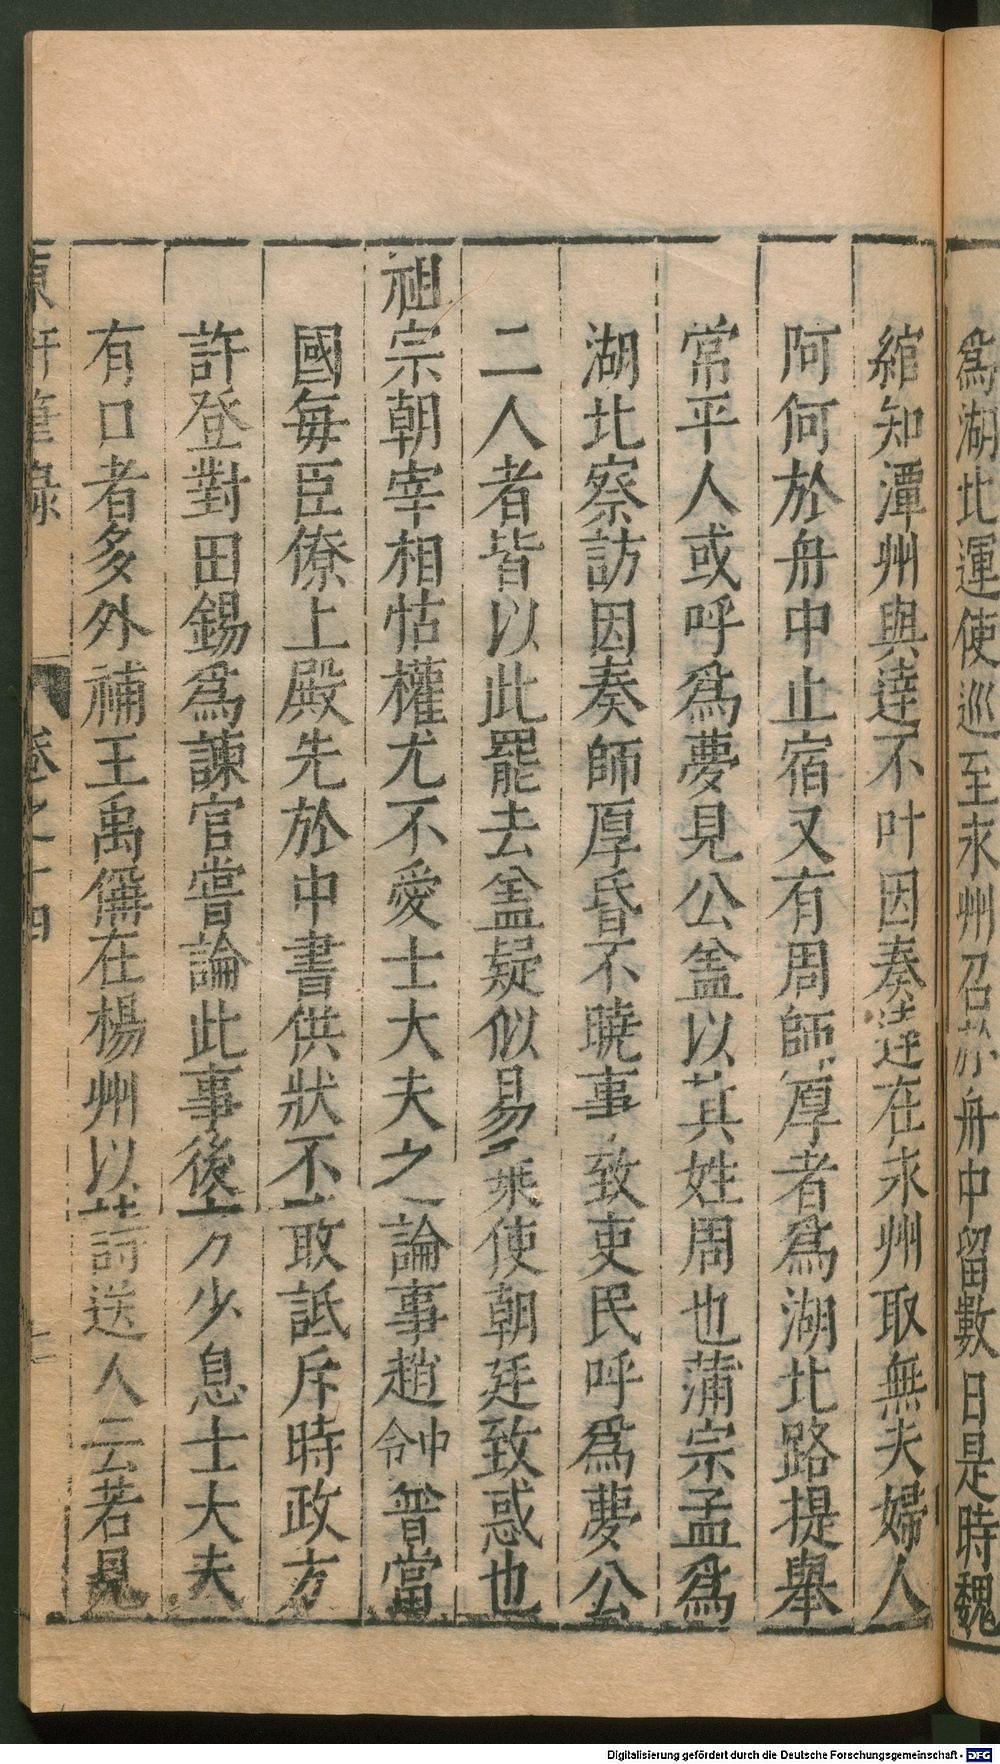 爲湖北運使巡至永州召於舟中留數日是時魏
綰知潭州與達不叶因奏達在永州取無夫婦人
阿何於舟中止宿又有周師厚者爲湖北路提舉
常平人或呼爲夢見公盖以其姓周也蒲宗孟爲
湖北察訪因奏師厚昏不曉事致吏民呼爲夢公
二人者皆以此罷去盖疑似易乘使朝廷致惑也
祖宗朝宰相怙權尤不愛士大夫之論事趙中令普當
國每臣僚上殿先於中書供狀不敢詆斥時政方
許登對田錫爲諫官嘗論此事後方少息士大夫
有口者多外補王禹偁在楊州以詩送人云若見
東軒筆錄
卷之十四
Digitalisierung gefördert durch die Deutsche Forschungsgemeinschaft - DFG